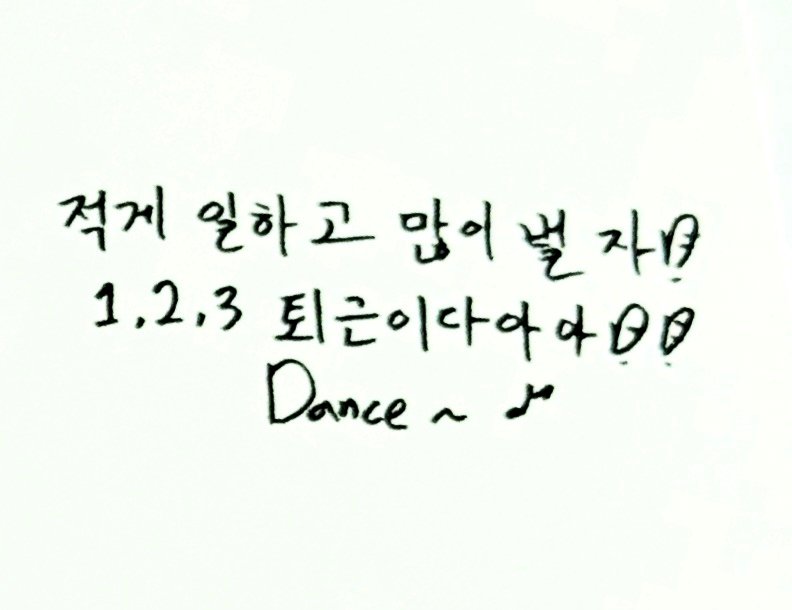 적게 일하고 많이 벌자!
1,2,3 퇴근이다아아!!
Dance~ ♪